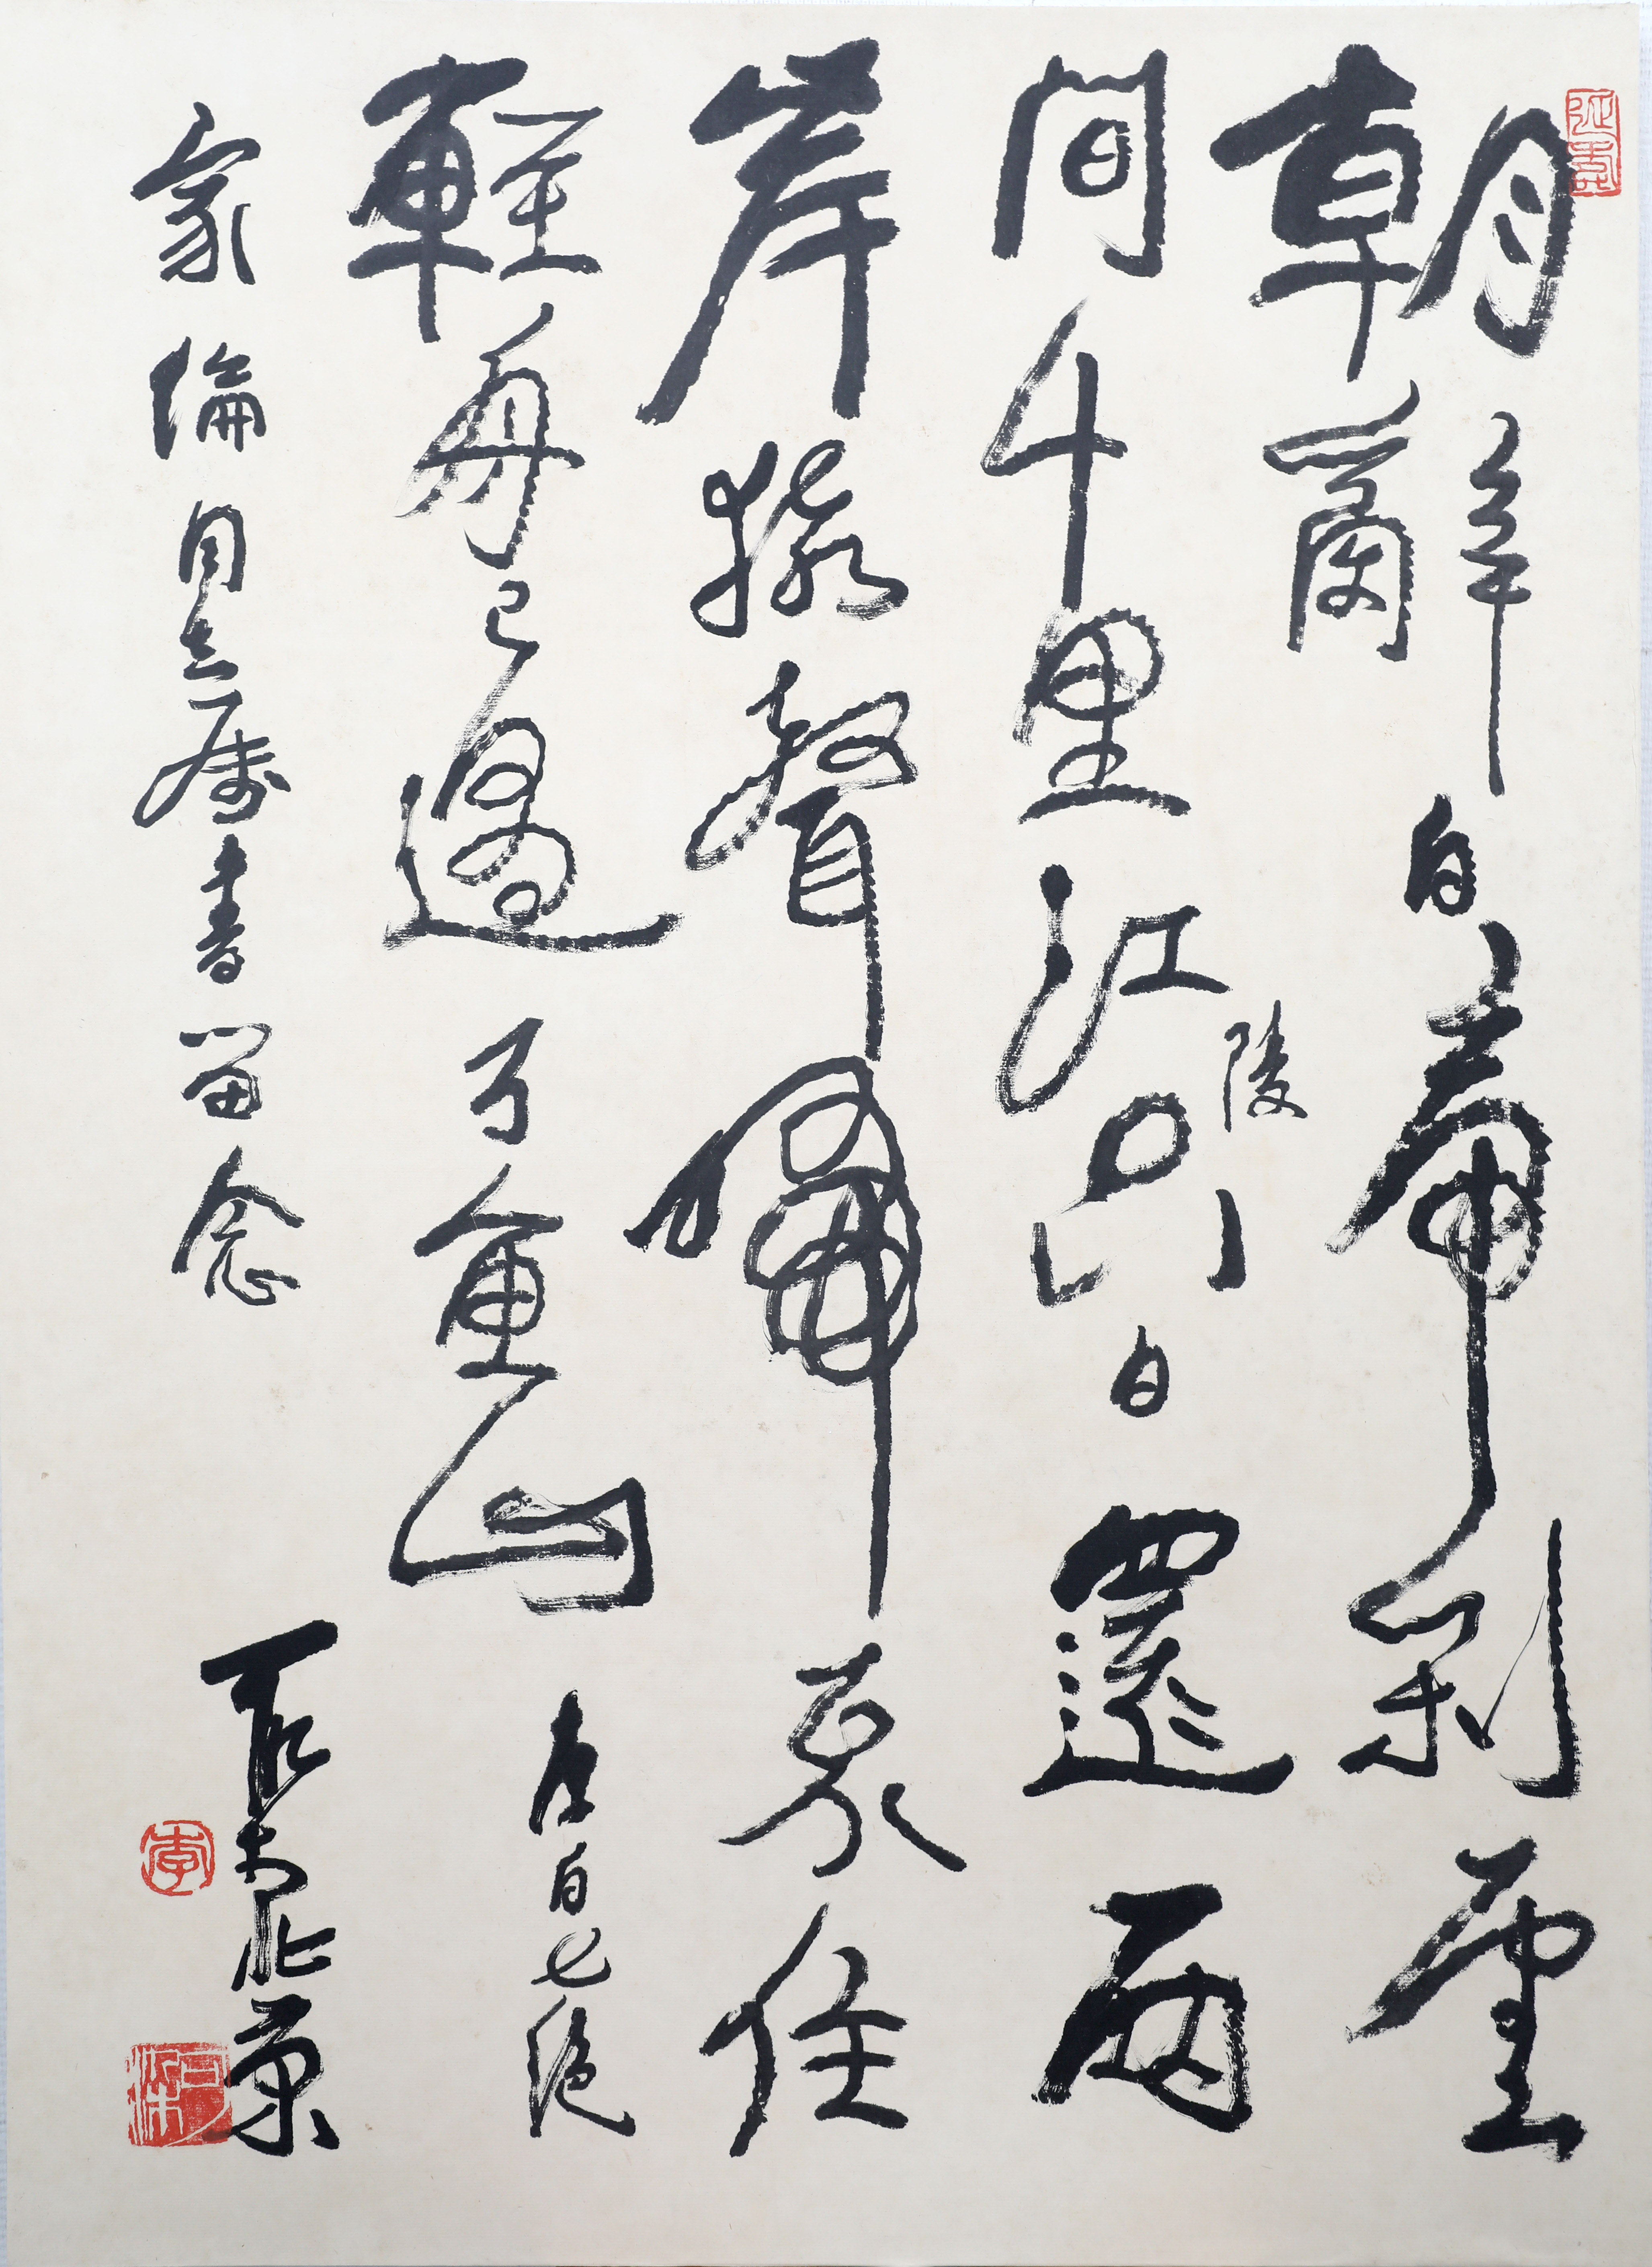 朝辭白帝彩雲
間千里江陵日還兩
岸猿聲啼住
輕舟已過万重山 李白七絕
家倫同志属書留念 可染北京
李
可染